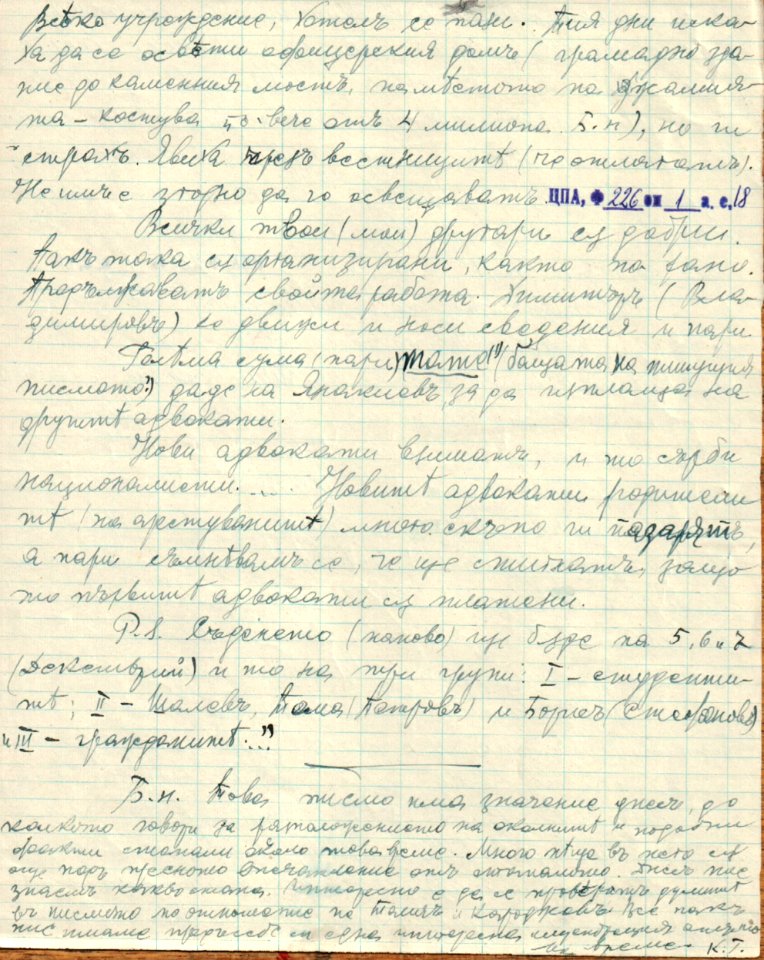 Всѣко учреждение, хотелъ се пази. Тия дни иска-
ха да се освѣти офицерския домъ (грамадно зда-
ние до каменния мостъ, на мѣстото на джамия-
та - костува по-вече отъ 4 милиона б.н), но ги
страхъ. Явиха чрезъ вестницитѣ (че отлагатъ).
Не имъ е згодно да го освещаватъ. ЦПА, Ф 226 оп 1 а. е. 18
Всички твои (мои) другари сѫ добри.
Пакъ така сѫ организирани, както по рано.
Продължаватъ своята работа. Димитъръ (Вла-
димировъ) се движи и носи сведения и пари
Голѣма сума (пари) тате (бащата на пишущия
писмото) даде на за да изплаща на
другитѣ адвокати.
Нови адвокати взиматъ, и то сърби
националисти.... Новитѣ адвокати родители-
тѣ (на арестуванитѣ) много скъпо ги пазарятъ,
а пари съмнѣвамъ се, че ще стигнатъ, защо-
то първитѣ адвокати сѫ платени.
P.S. Съденето (наново) ще бѫде на 5, 6 и 7
(Декемврий) и то на три групи: I - студенти-
тѣ; II - Шалевъ, Тома (Петровъ) и Борисъ (Стефановъ)
и III - гражданитѣ..."
Б.н. Това писмо има значение днесъ, до
колкото говори за разположението на околнитѣ и подобни
факти станали около това време. Много нѣща въ него сѫ
още подъ прясното впечатление отъ станалото. Днесъ ние
знаемъ какво стана. Интересно е да се провѣрятъ думитѣ
въ писмото по отношение на и Все пакъ
ние имаме предъ себе си една интересна
време. К.Г.